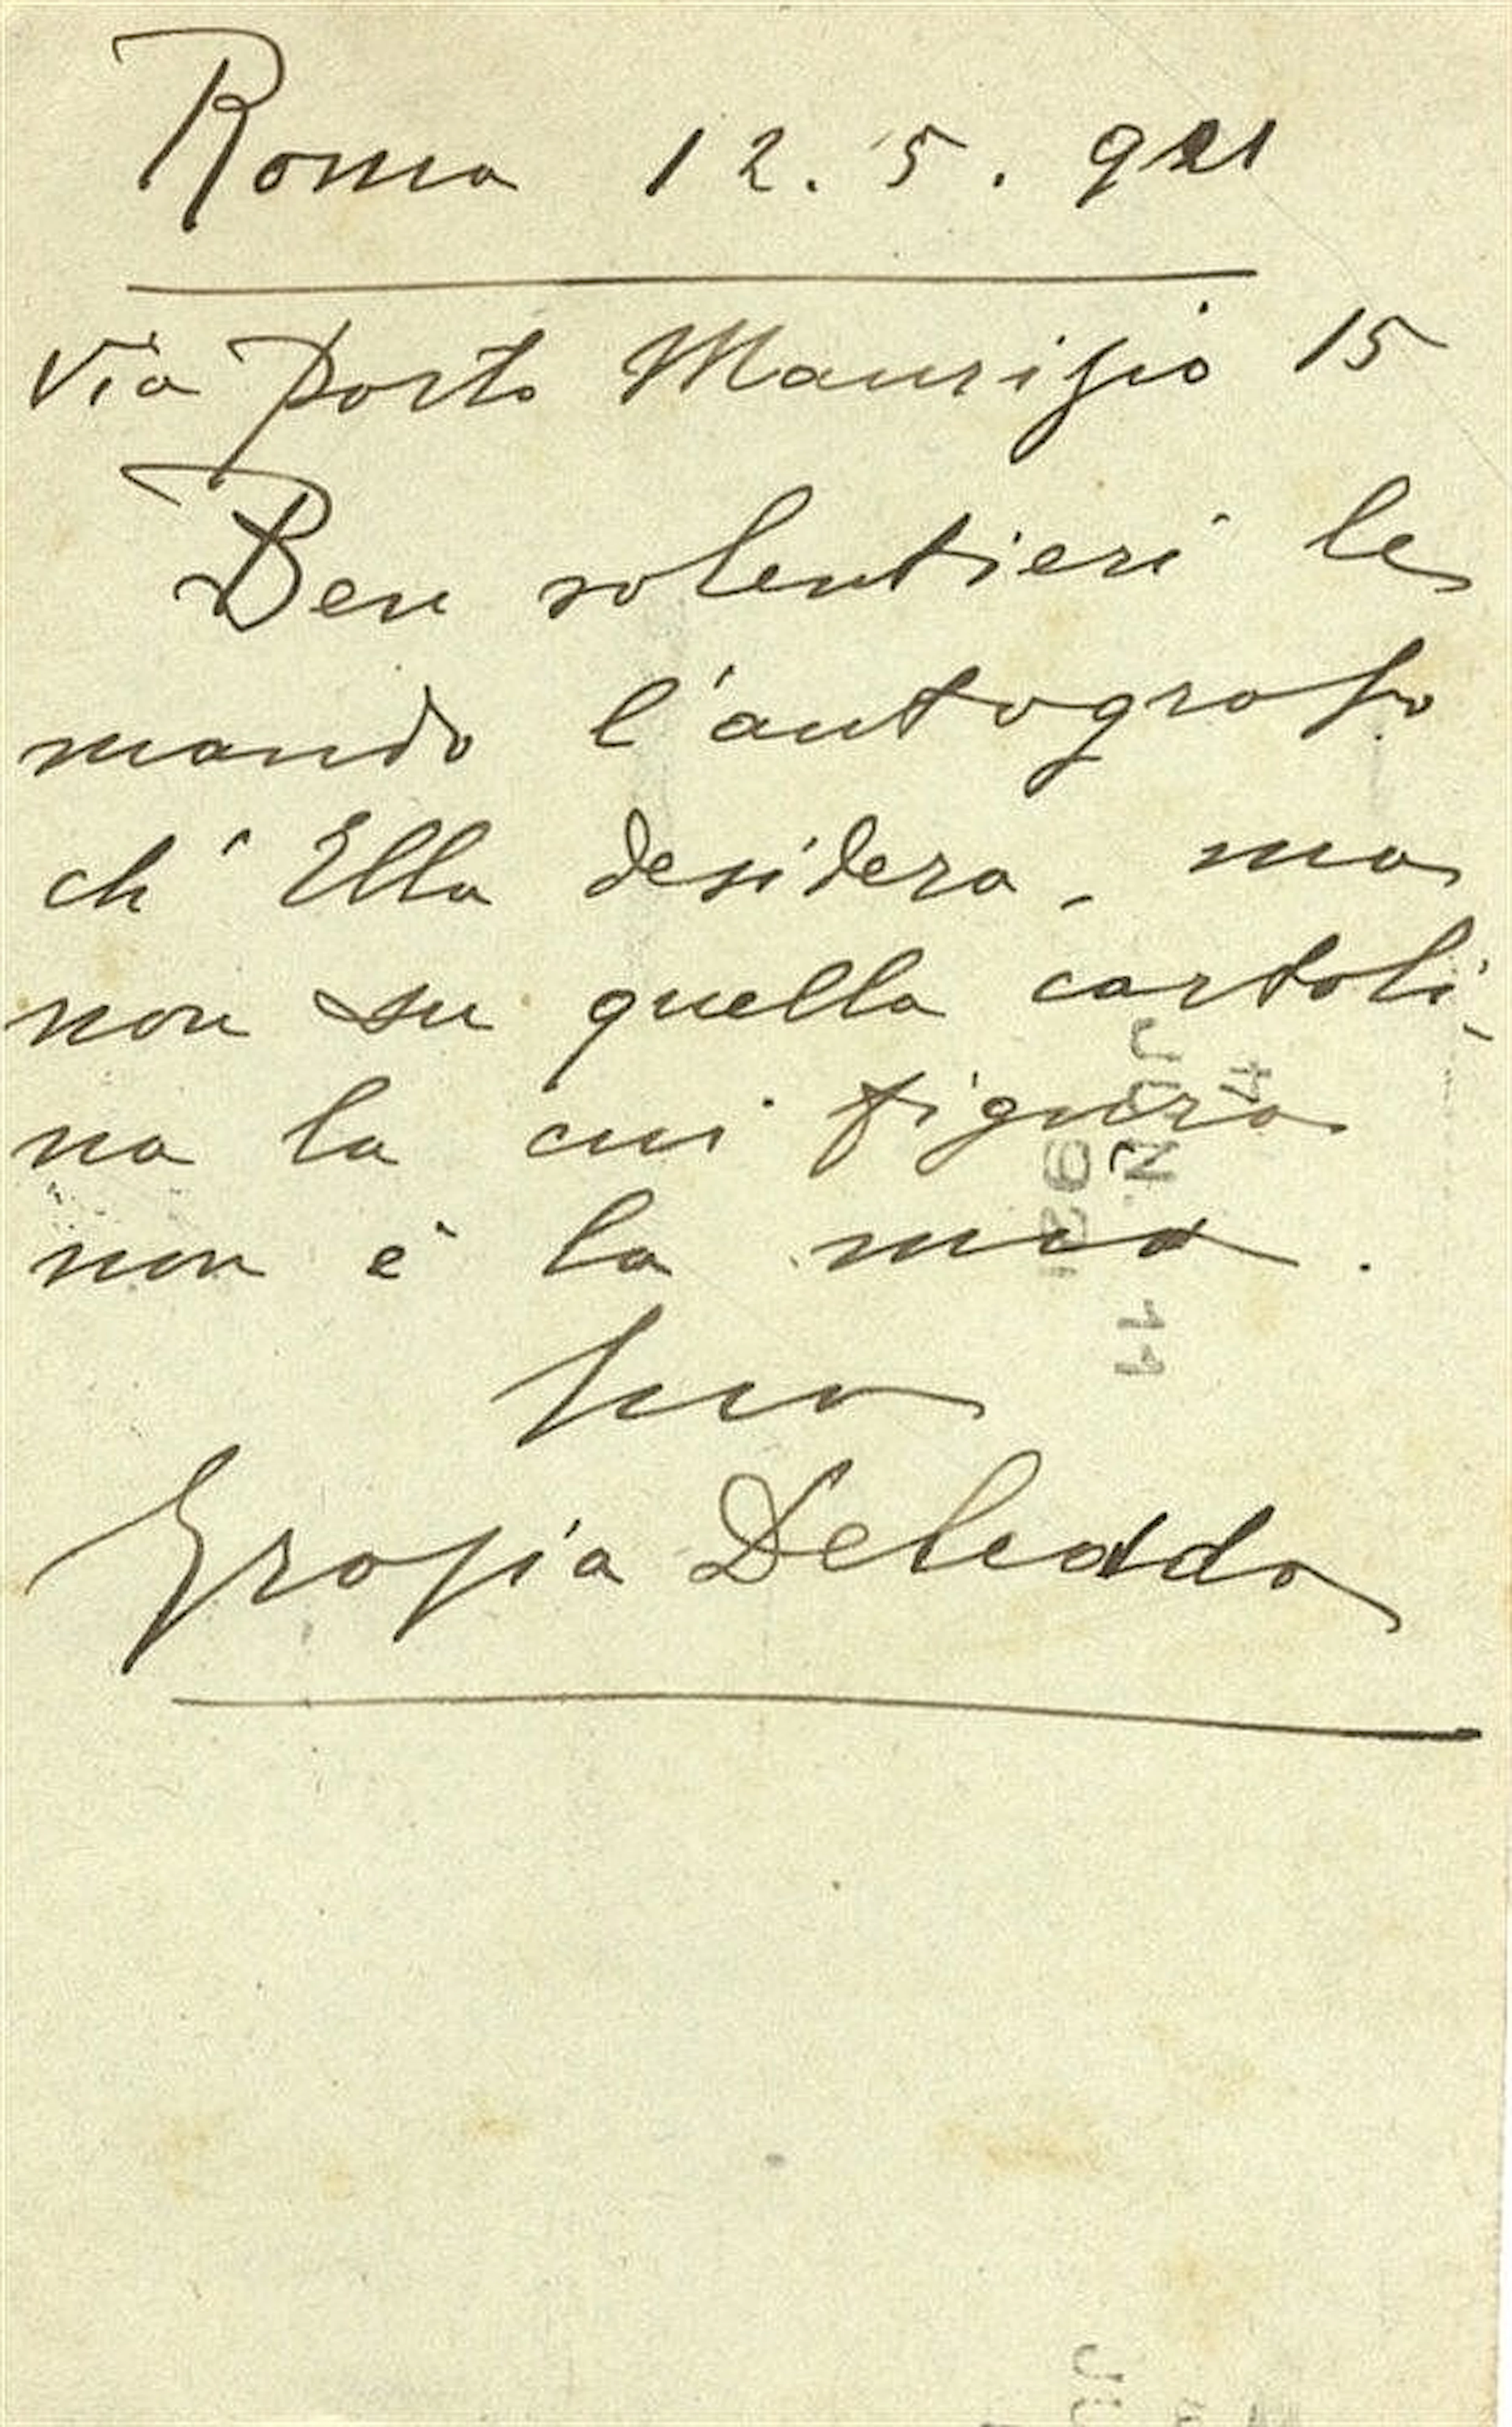 Roma 12. 5. 921
Via Porto Maurizio 15
Ben volentieri le
mando l'autografo
ch'Ella desidera, ma
non su quella cartoli-
na la cui figura
non è la mia.
Sua
Grazia Deledda